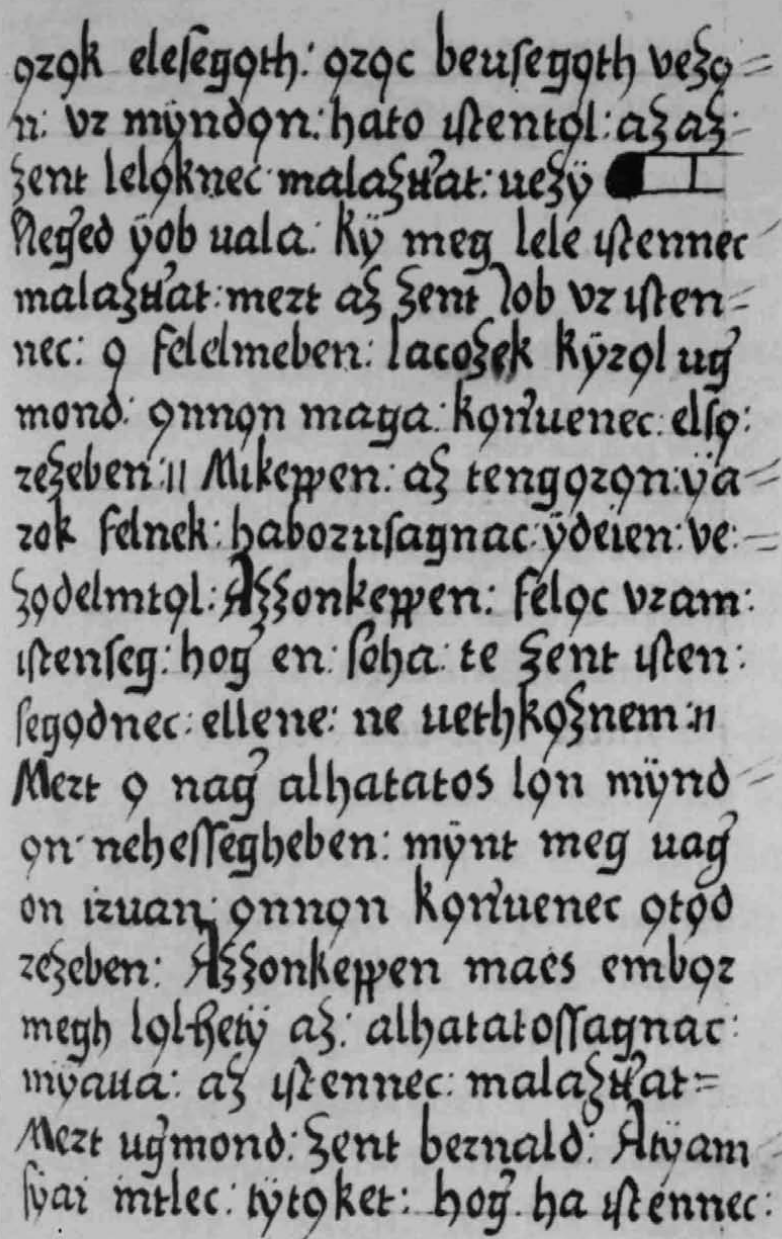 ǫrǫk eleſegǫth: ǫrǫc beuſegǫth vezǫ=
n: vr mÿndǫn: hato iſtentǫl: az az:
zent lelǫknec malaztʼat: uezÿ
Negʼed ÿob uala: kÿ meg lele iſtennec
malaztʼat: mert az zent Iob vr iſten=
nec: ǫ felelmeben: lacozek kÿrǫl ugʼ
mond: ǫnnǫn maga: kǫnʼuenec: elſǫ:
rezeben: ıı Mikeppen: az tengǫrǫn: ÿa=
rok felnek: haboruſagnac: ÿdeien: ve:=
zǫdelmtǫl: Azzonkeppen: felǫc vram:
iſtenſeg: hogʼ en: ſoha: te zent iſten:
ſegǫdnec: ellene: ne uethkǫznem: ıı
Mert ǫ nagʼ alhatatos lǫn mÿnd=
ǫn neheſſegheben: mÿnt meg uagʼ
on iruan: ǫnnǫn kǫnʼuenec ǫtǫd
rezeben: Azzonkeppen maes embǫr
megh lǫlhetÿ az: alhatatoſſagnac:
mÿaua: az iſtennec: malaztʼat=
Mert ugʼmond: zent bernald: Atÿam
fÿai mtlec: tÿtǫket: hogʼ ha iſtennec: